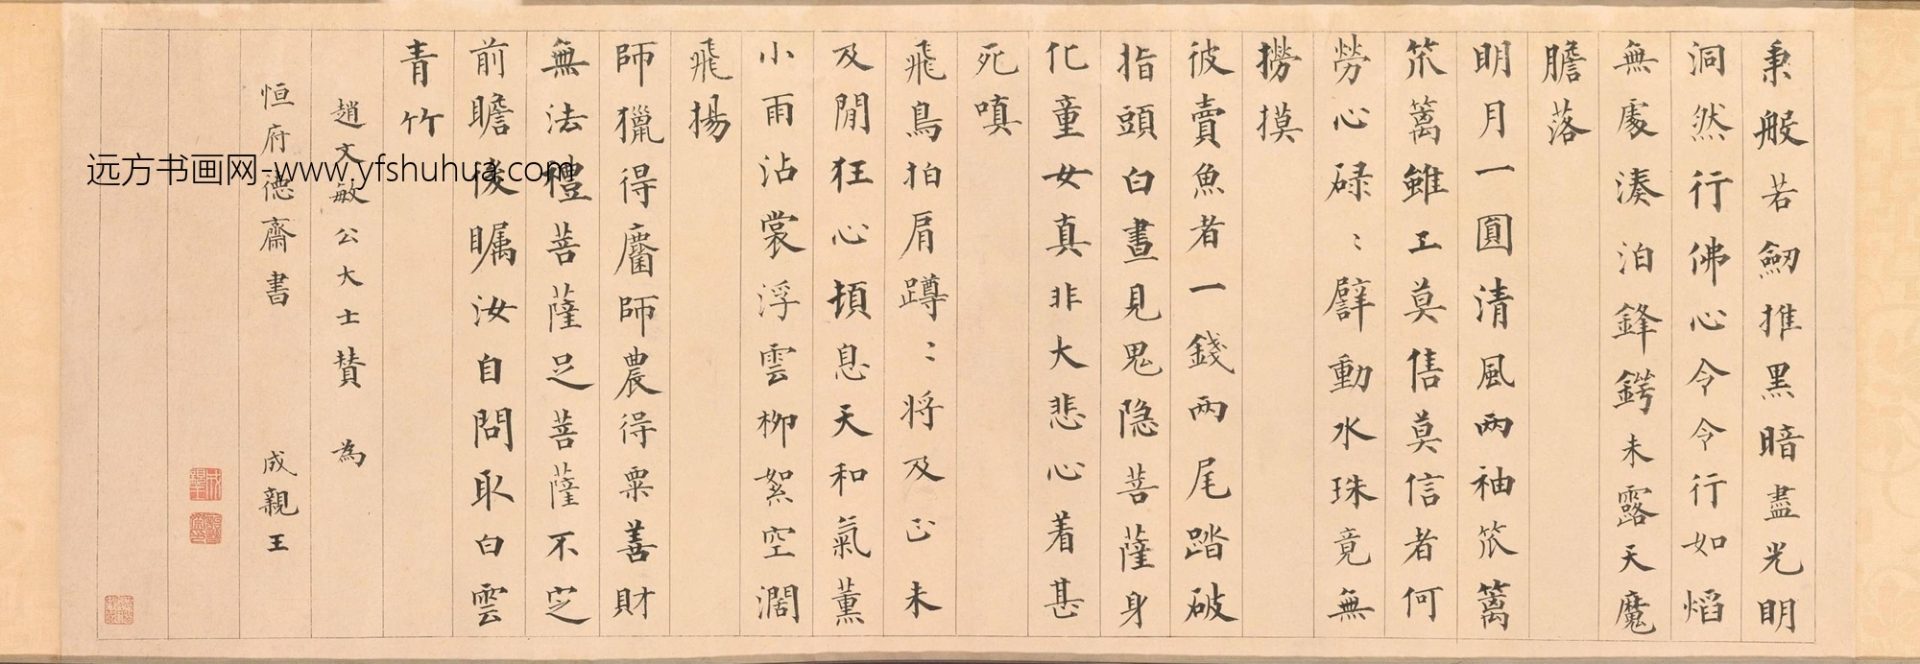 秉般若劒推黑暗盡光明
洞然行佛心令令行如焰
無處湊泊鋒鍔未露天魔
膽落
明月一圓清風兩袖笊篱
笊篱雖工莫售莫信者何
勞心碌〻擘動水珠竟無
撈摸
彼賣魚者一錢兩尾踏破
指頭白晝見鬼隐菩薩身
化童女真非大悲心着甚
死嗔
飛鳥拍肩蹲〻将及乚未
及閒狂心頓息天和氣薰
小雨沾裳浮雲柳絮空濶
飛揚
師獵得麕師農得粟善財
無法禮菩薩足菩薩不
前瞻後矚汝自問取白雲
青竹
趙文敏公大士賛 為
恒府德齋書 成親王
远方书画网-www.yfshuhua.com